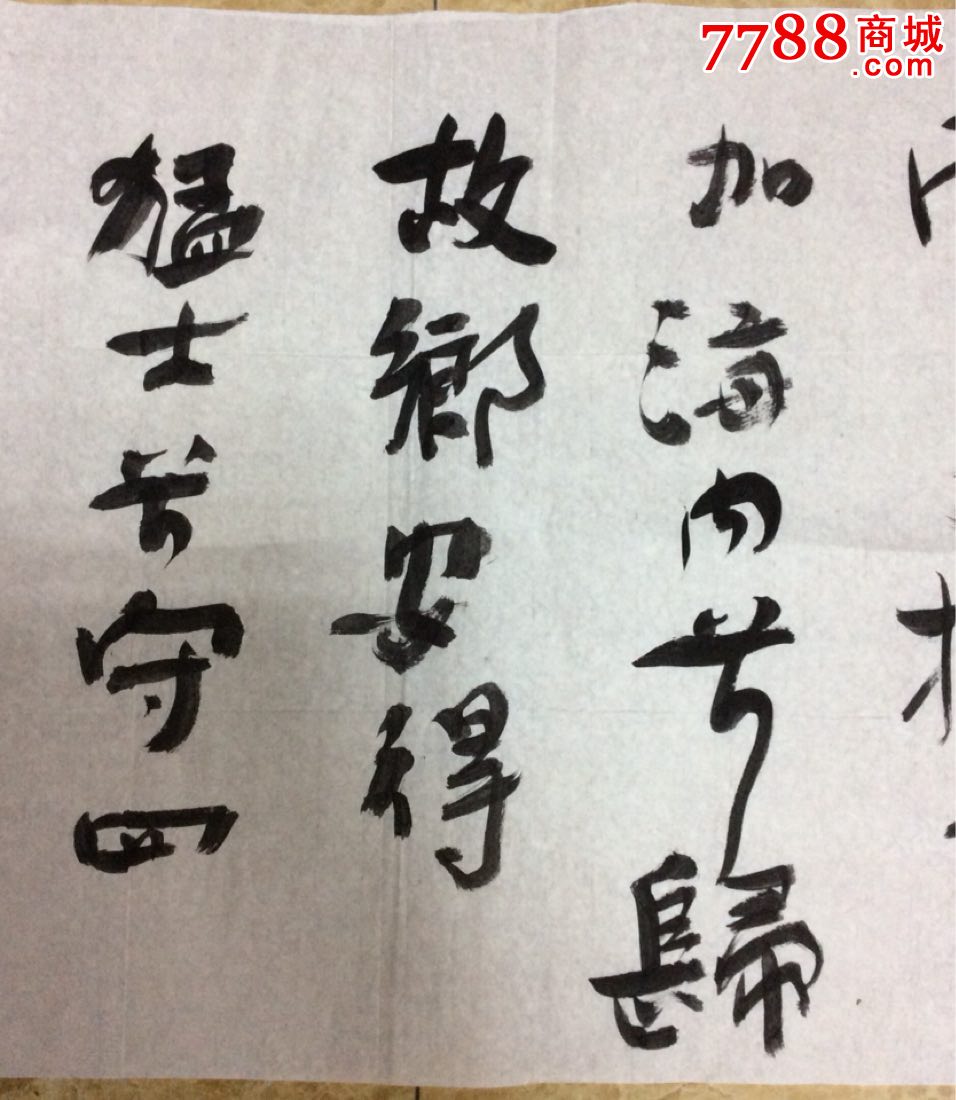 7788商城
.com
加海内兮歸
故鄉安得
猛士兮守四